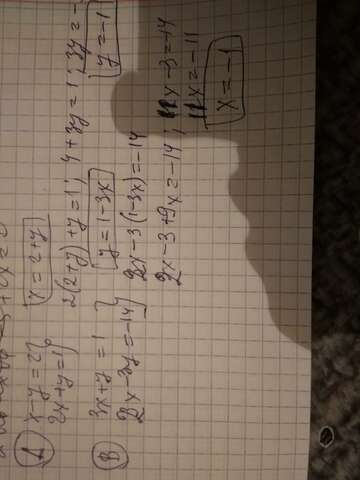 A) x-y=2 } x=2+y
2x+y=1 } 2(2+y)+y=1; 4+3y=1; 3y=-
y=-1
B) 3x+y=1 } y=1-3x
2x-3y=-14 } 2x-3(1-3x)=-14
2x-3+9x=-14; 11x-3=-14
11x=-11
x=-1